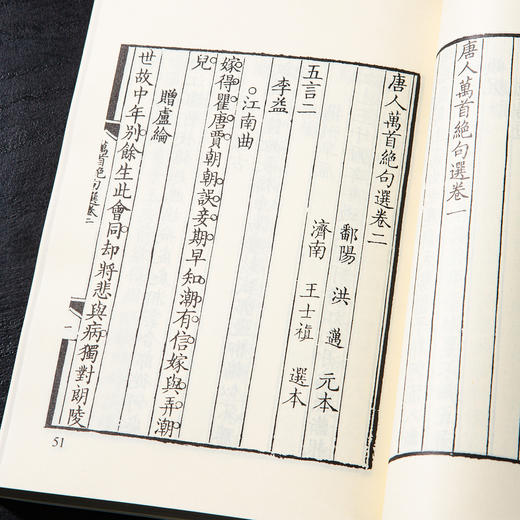 唐人萬首絕句選卷一
唐人萬首絕句選卷二
鄱陽 洪 邁 元本
濟南 王士禛 選本
五言二
李益
○江南曲
嫁得瞿唐賈朝朝誤妾期早知潮有信嫁與弄潮
兒
贈盧綸
世故中年別餘生此會同却將悲與病獨對朗陵
萬首絕句選卷二
一
51